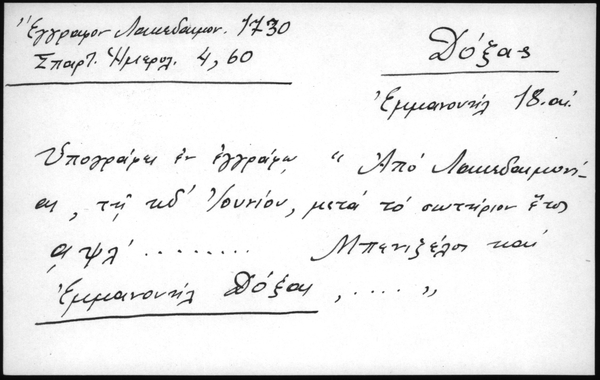 Ἔγγραφον Λακεδαιμον. 1730
Σπαρτ. Ἡμερολ. 4, 60
Δόξας
Ἐμμανουήλ 18. αἰ.
Ὑπογράφει ἐν ἐγγράφῳ “ Ἀπό Λακεδαιμονί-
ας, τῇ κδ' Ἰουνίου, μετά τό σωτήριον ἔτος
͵αψλ' ........ Μπενιζέλος καί
Ἐμμανουήλ Δόξας, .... ”